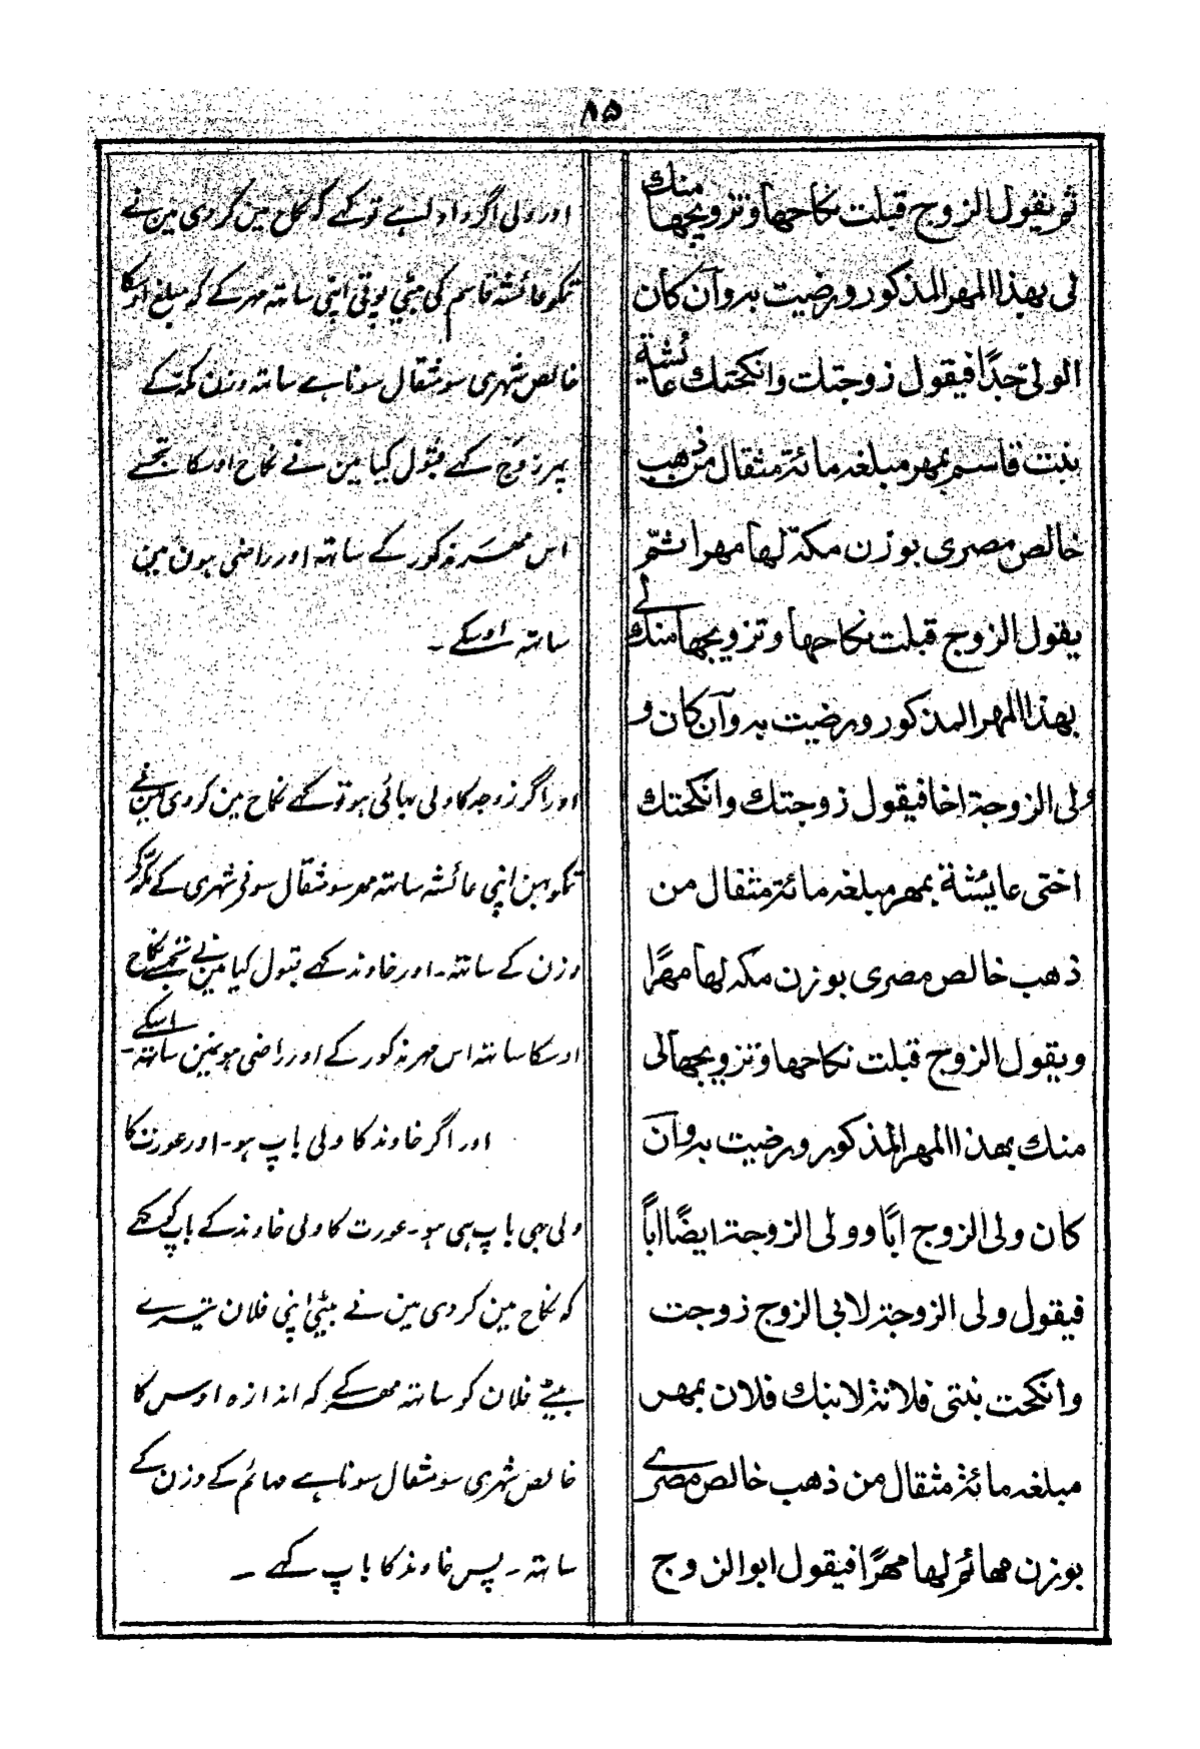 ۸۵
ثم يقول الزوج قبلت نكاحها وتزويجها منك
لى بهذا المهر المذكور ورضيت به وان كان
الولى جدًا فيقول زوجتك وانكحتك عايشة
بنت قاسم بمهر مبلغه مائة مثقال من ذهب
خالص مصرى بوزن مكة لها مهرا ثمّ
يقول الزوج قبلت نكاحها وتزويجها منك لى
بهذا المهر المذكور ورضيت به وان كان و
ولى الزوجة اخا فيقول زوجتك وانكحتك
اختى عايشة بمهر مبلغه مائة مثقال من
ذهب خالص مصرى بوزن مكه لها مهرًا
ويقول الزوج قبلت نكاحها وتزويجها لى
منك بهذا المهر المذكور ورضيت به وان
كان ولى الزوج ابًا وولى الزوجة ايضًا اباً
فيقول ولى الزوجة لابى الزوج زوجت
وانكحت بنتى فلانة لابنك فلان بمهر
مبلغه مائة مثقال من ذهب خالص مصرے
بوزن مهائم لها مهرًا فيقول ابو الزوج
اور ولی اگر دادا ہے تو کہے کہ نکاح مین کر دی مین نے
تمکو عائشہ قاسم کی بیٹی پوتی اپنی ساتہ مہر کے کہ مبلغ اوسکا
خالص شہری سو مثقال سونا ہے ساتہ وزن مکہ کے
پہر زوج کہے قبول کیا مین نے نکاح اوسکا تجھسے
اس مہر مذکور کے ساتہ اور راضی ہون مین
ساتہ اوسکے ۔
اور اگر زوجہ کا ولی بہائی ہو تو کہے نکاح مین کر دی مین نے
تمکو بہن اپنی عائشہ ساتہ مہر سو مثقال سونے شہری کے مکہ کے
وزن کے ساتہ ۔ اور خاوند کہے قبول کیا مین نے تجھسے نکاح
اوسکا ساتہ اس مہر مذکور کے اور راضی ہو مین ساتہ اسکے ۔
اور اگر خاوند کا ولی باپ ہو ۔ اور عورت کا
ولی بھی باپ ہی ہو ۔ عورت کا ولی خاوند کے باپ کو کہے
کہ نکاح مین کر دی مین نے بیٹی اپنی فلان تیرے
بیٹے فلان کو ساتہ مہر کے کہ اندازہ اوس کا
خالص شہری سو مثقال سونا ہے مہائم کے وزن کے
ساتہ ۔ پس خاوند کا باپ کہے ۔